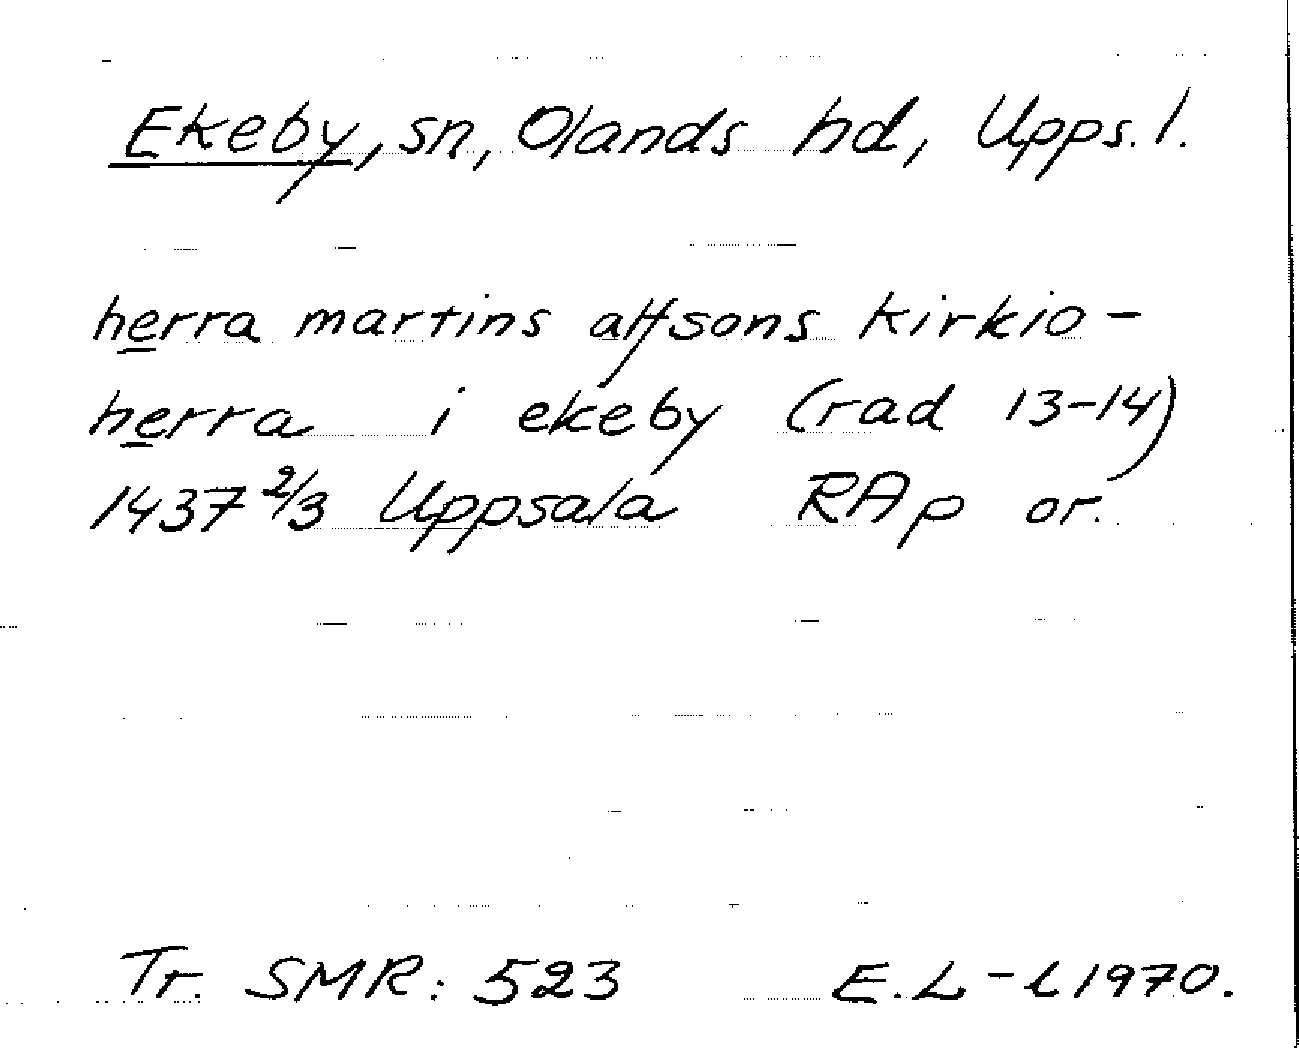 Ekeby, sn, Olands hd, Upps. l.
herra martins alfsons kirkio-
herra i ekeby (rad 13-14)
1437 2/3 Uppsala RAp or.
Tr. SMR: 523 E.L-l 1970.